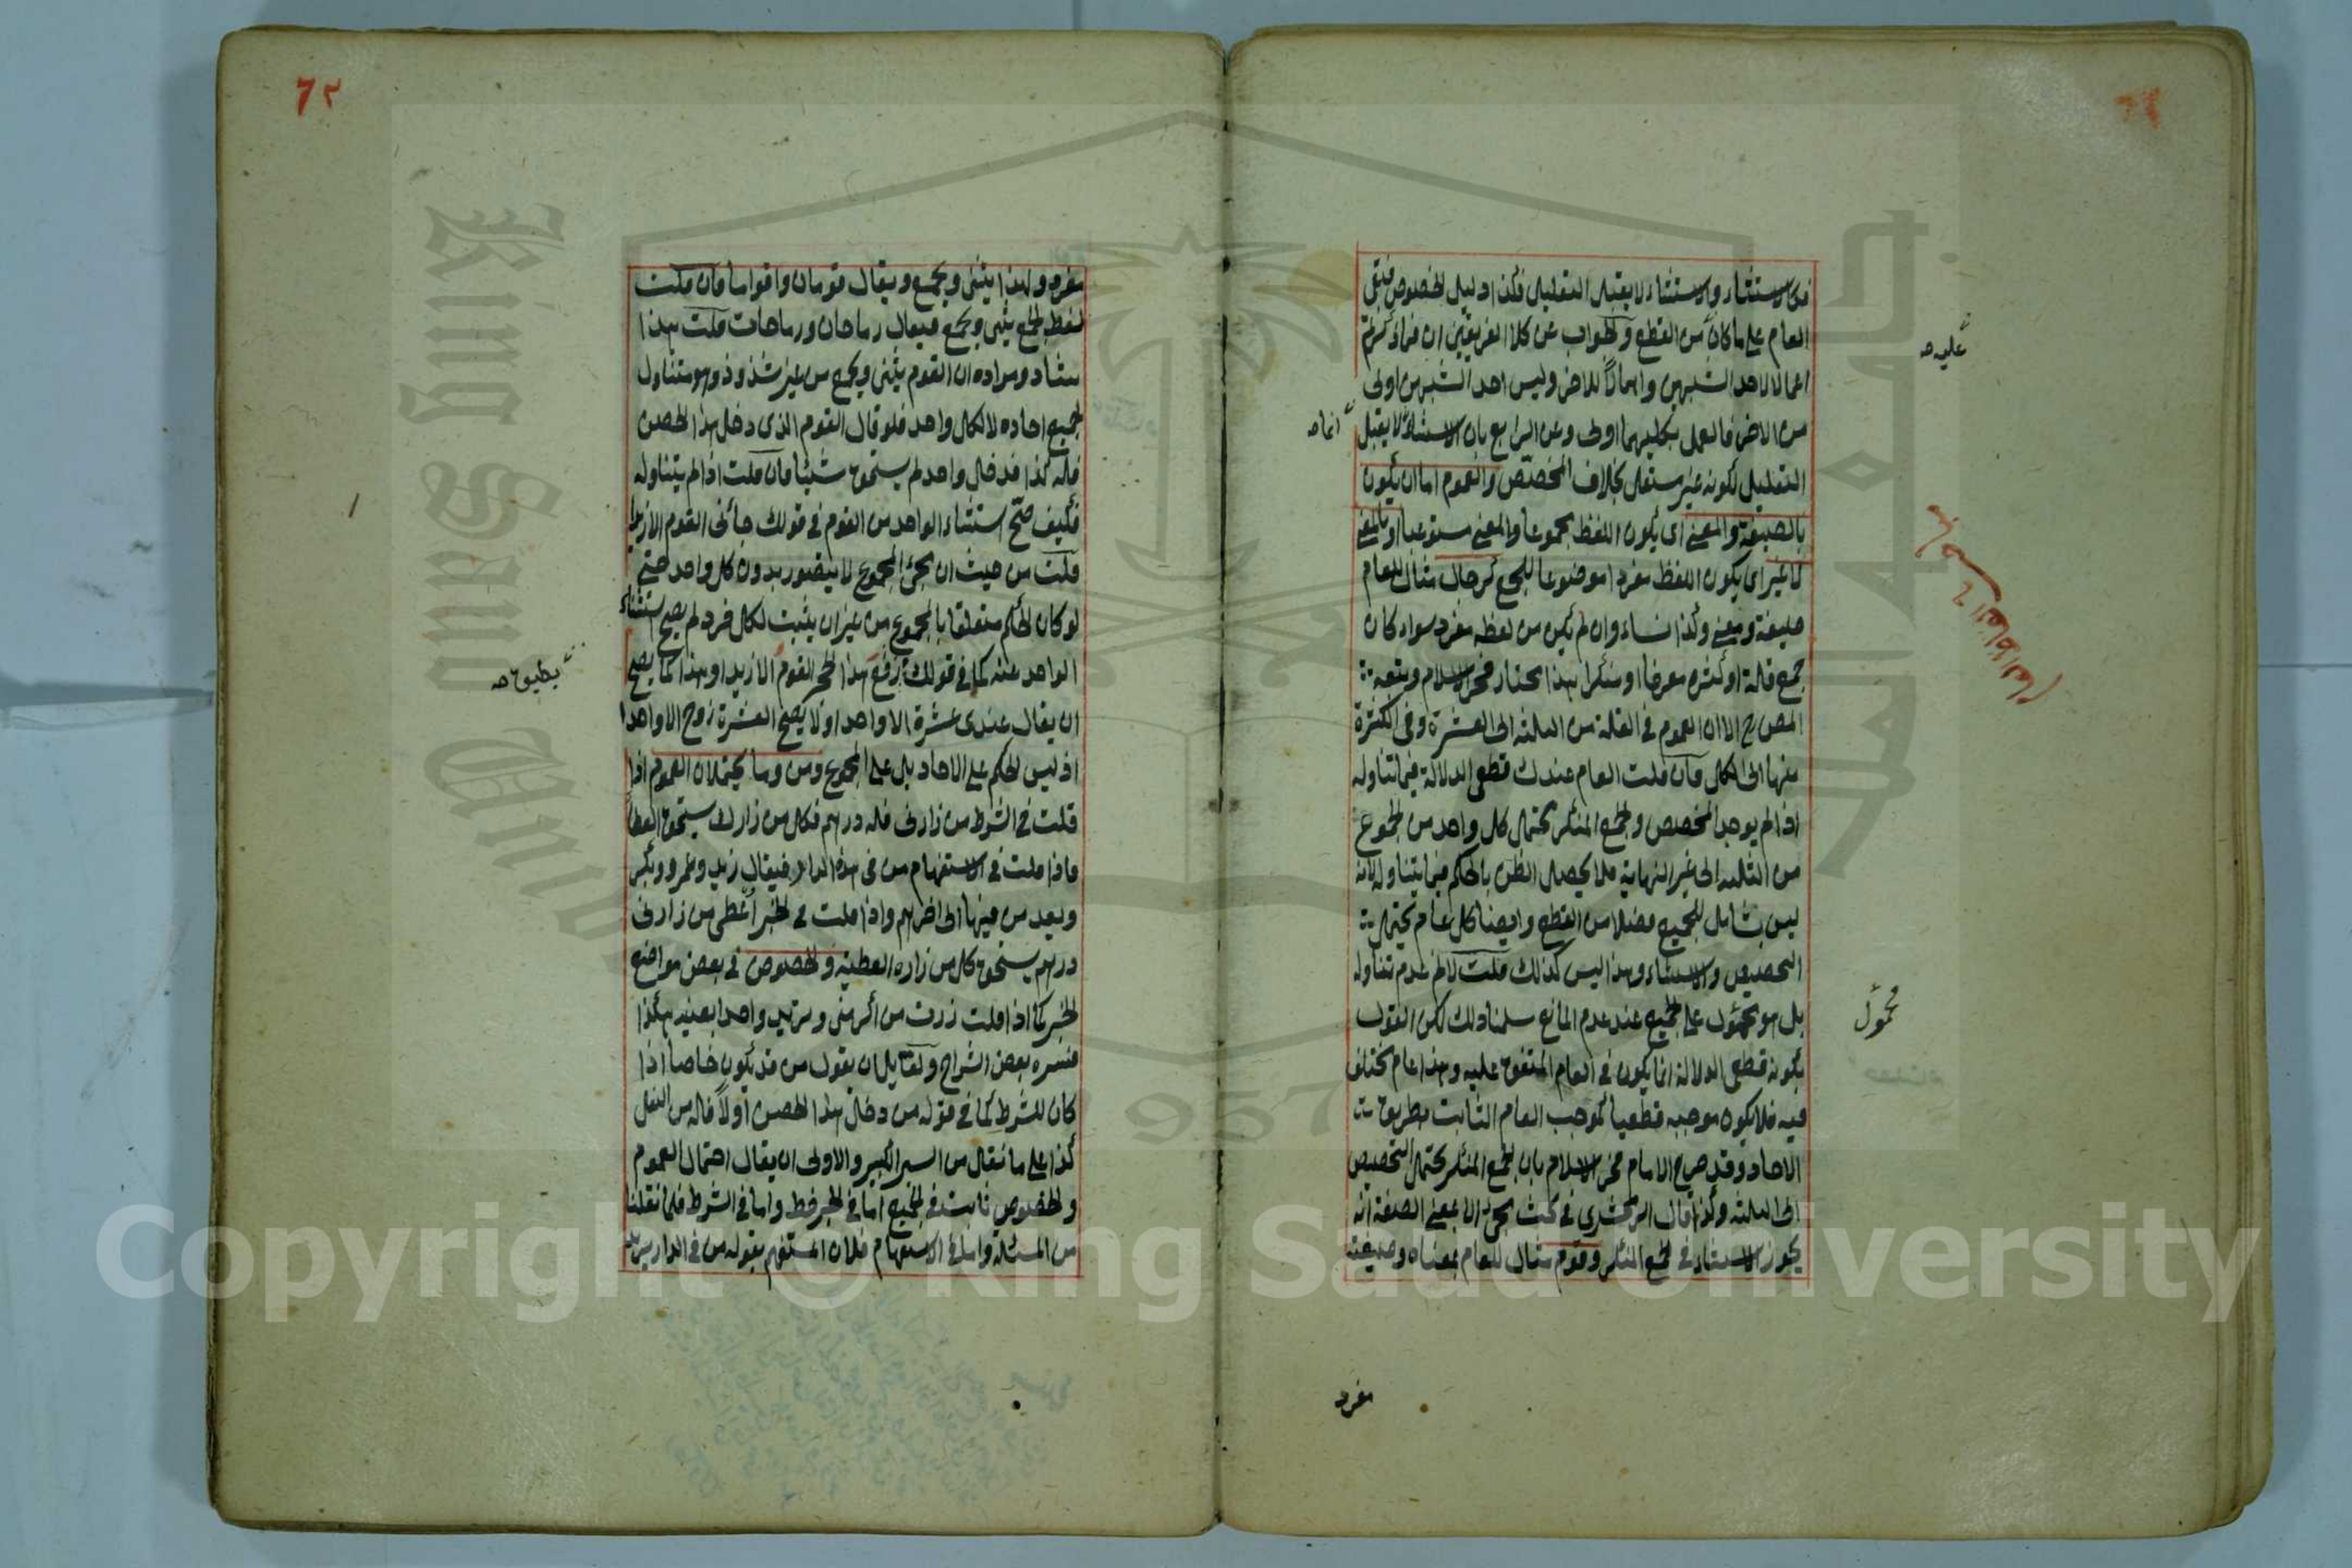 فكالاستثناء والاستثناء لا يقبل التعليل فكذا دليل الخصوص فبقى
العام على ما كان من القطع والجواب عن كلا الفريقين ان فى
اعمالا لاحد الشبهين واهمالا للاخر وليس احد الشبهين اولى
من الاخر فالعمل بكليهما اولى وعن الرابع بان الاستثناء لا يقبل
التعليل لكونه غير مستقل بخلاف المخصص والعموم اما ان يكون
بالصيغة والمعنى اى يكون اللفظ مجموعا والمعنى مستوعبا او بالمعنى
لا غير اى يكون اللفظ مفردا موضوعا للجمع كرجال مثال للعام
صيغة ومعنى وكذا نساء وان لم يكن من لفظه مفرد سواء كان
جمع قلة او كثرة معرفا او منكرا هذا مختار فخر الاسلام وتبعه
المص رح الا ان العموم فى القلة من الثلثة الى العشرة وفى الكثرة
منها الى الكل فان قلت العام عندك قطعى الدلالة فيما تناوله
اذا لم يوجد المخصص والجمع المنكر يحتمل كل واحد من الجموع
من الثلثة الى غير النهاية فلا يحصل الظن بالحكم فيما يتناوله لانه
ليس بشامل للجميع فضلا من القطع وايضا كل عام يحتمل
التخصيص والاستثناء وهذا ليس كذلك قلت لا نم عدم تناوله
بل هو محمول على الجميع عند عدم المانع سلمنا ذلك لكن القول
بكونه قطعى الدلالة انما يكون فى العام المتفق عليه وهذا عام مختلف
فيه فلا يكون موجبه قطعيا كموجب العام الثابت بطريق
الاحاد وقد صرح الامام فخر الاسلام بان الجمع المنكر يحتمل التخصيص
الى الثلثة وكذا قال الزمخشرى فى بحث مجئ الا بمعنى الصفة انه
يجوز الاستثناء فى الجمع المنكر وقوم مثال للعام بمعناه وصيغته
عليه صح
انما صح
محمول
مفرد
٦٢
مفرد ولهذا يثنى ويجمع ويقال قومان واقواما فان قلت
لفظ الجمع يثنى ويجمع فيقال رماحان ورماحات قلت هذا
شاد ومراده ان القوم يثنى ويجمع من غير شذوذ وهو متناول
لجميع احاده لا لكل واحد فلو قال القوم الذى دخل هذا الحصن
فله كذا فدخل واحد لم يستحق شيئا فان قلت اذا لم يتناوله
فكيف صح استثناء الواحد من القوم فى قولك جائنى القوم الا زيدا
قلت من حيث ان مجئ المجموع لا يتصور بدون كل واحد حتى
لو كان الحكم متعلقا بالمجموع من غير ان يثبت لكل فرد لم يصح استثناء
الواحد عنه كما فى قولك رفع هذا الحجر القوم الا زيدا وهذا كما يصح
ان يقال عندى عشرة الا واحدا ولا يصح العشرة زوج الا واحدا
اذ ليس الحكم على الاحاد بل على المجموع ومن وما يحتملان العموم اذا
قلت فى الشرط من زارنى فله درهم فكل من زارك يستحق العطا
فاذا قلت فى الاستفهام من فى هذه الدار فيقال زيد وعمرو وبكر
ويعد من فيها الى اخرهم واذا قلت فى الخبر اعطى من زارنى
درهم يستحق كل من زاره العطية والخصوص فى بعض مواضع
الخبر كما اذا قلت زرت من اكرمنى وتريد واحدا بعينه هكذا
فسره بعض الشراح ولقايل ان يقول من قد يكون خاصا اذا
كان للشرط كما فى قوله من دخل هذا الحصن اولا فله من النفل
كذا على ما نقل من السير الكبير والاولى ان يقال احتمال العموم
والخصوص ثابت فى الجميع اما فى الخبر فظ واما فى الشرط فلما نقلنا
من المسئلة واما فى الاستفهام فلان المستفهم بقوله من فى الدار
بطريق صح
Copyright © King Saud University
King Saud University
1957